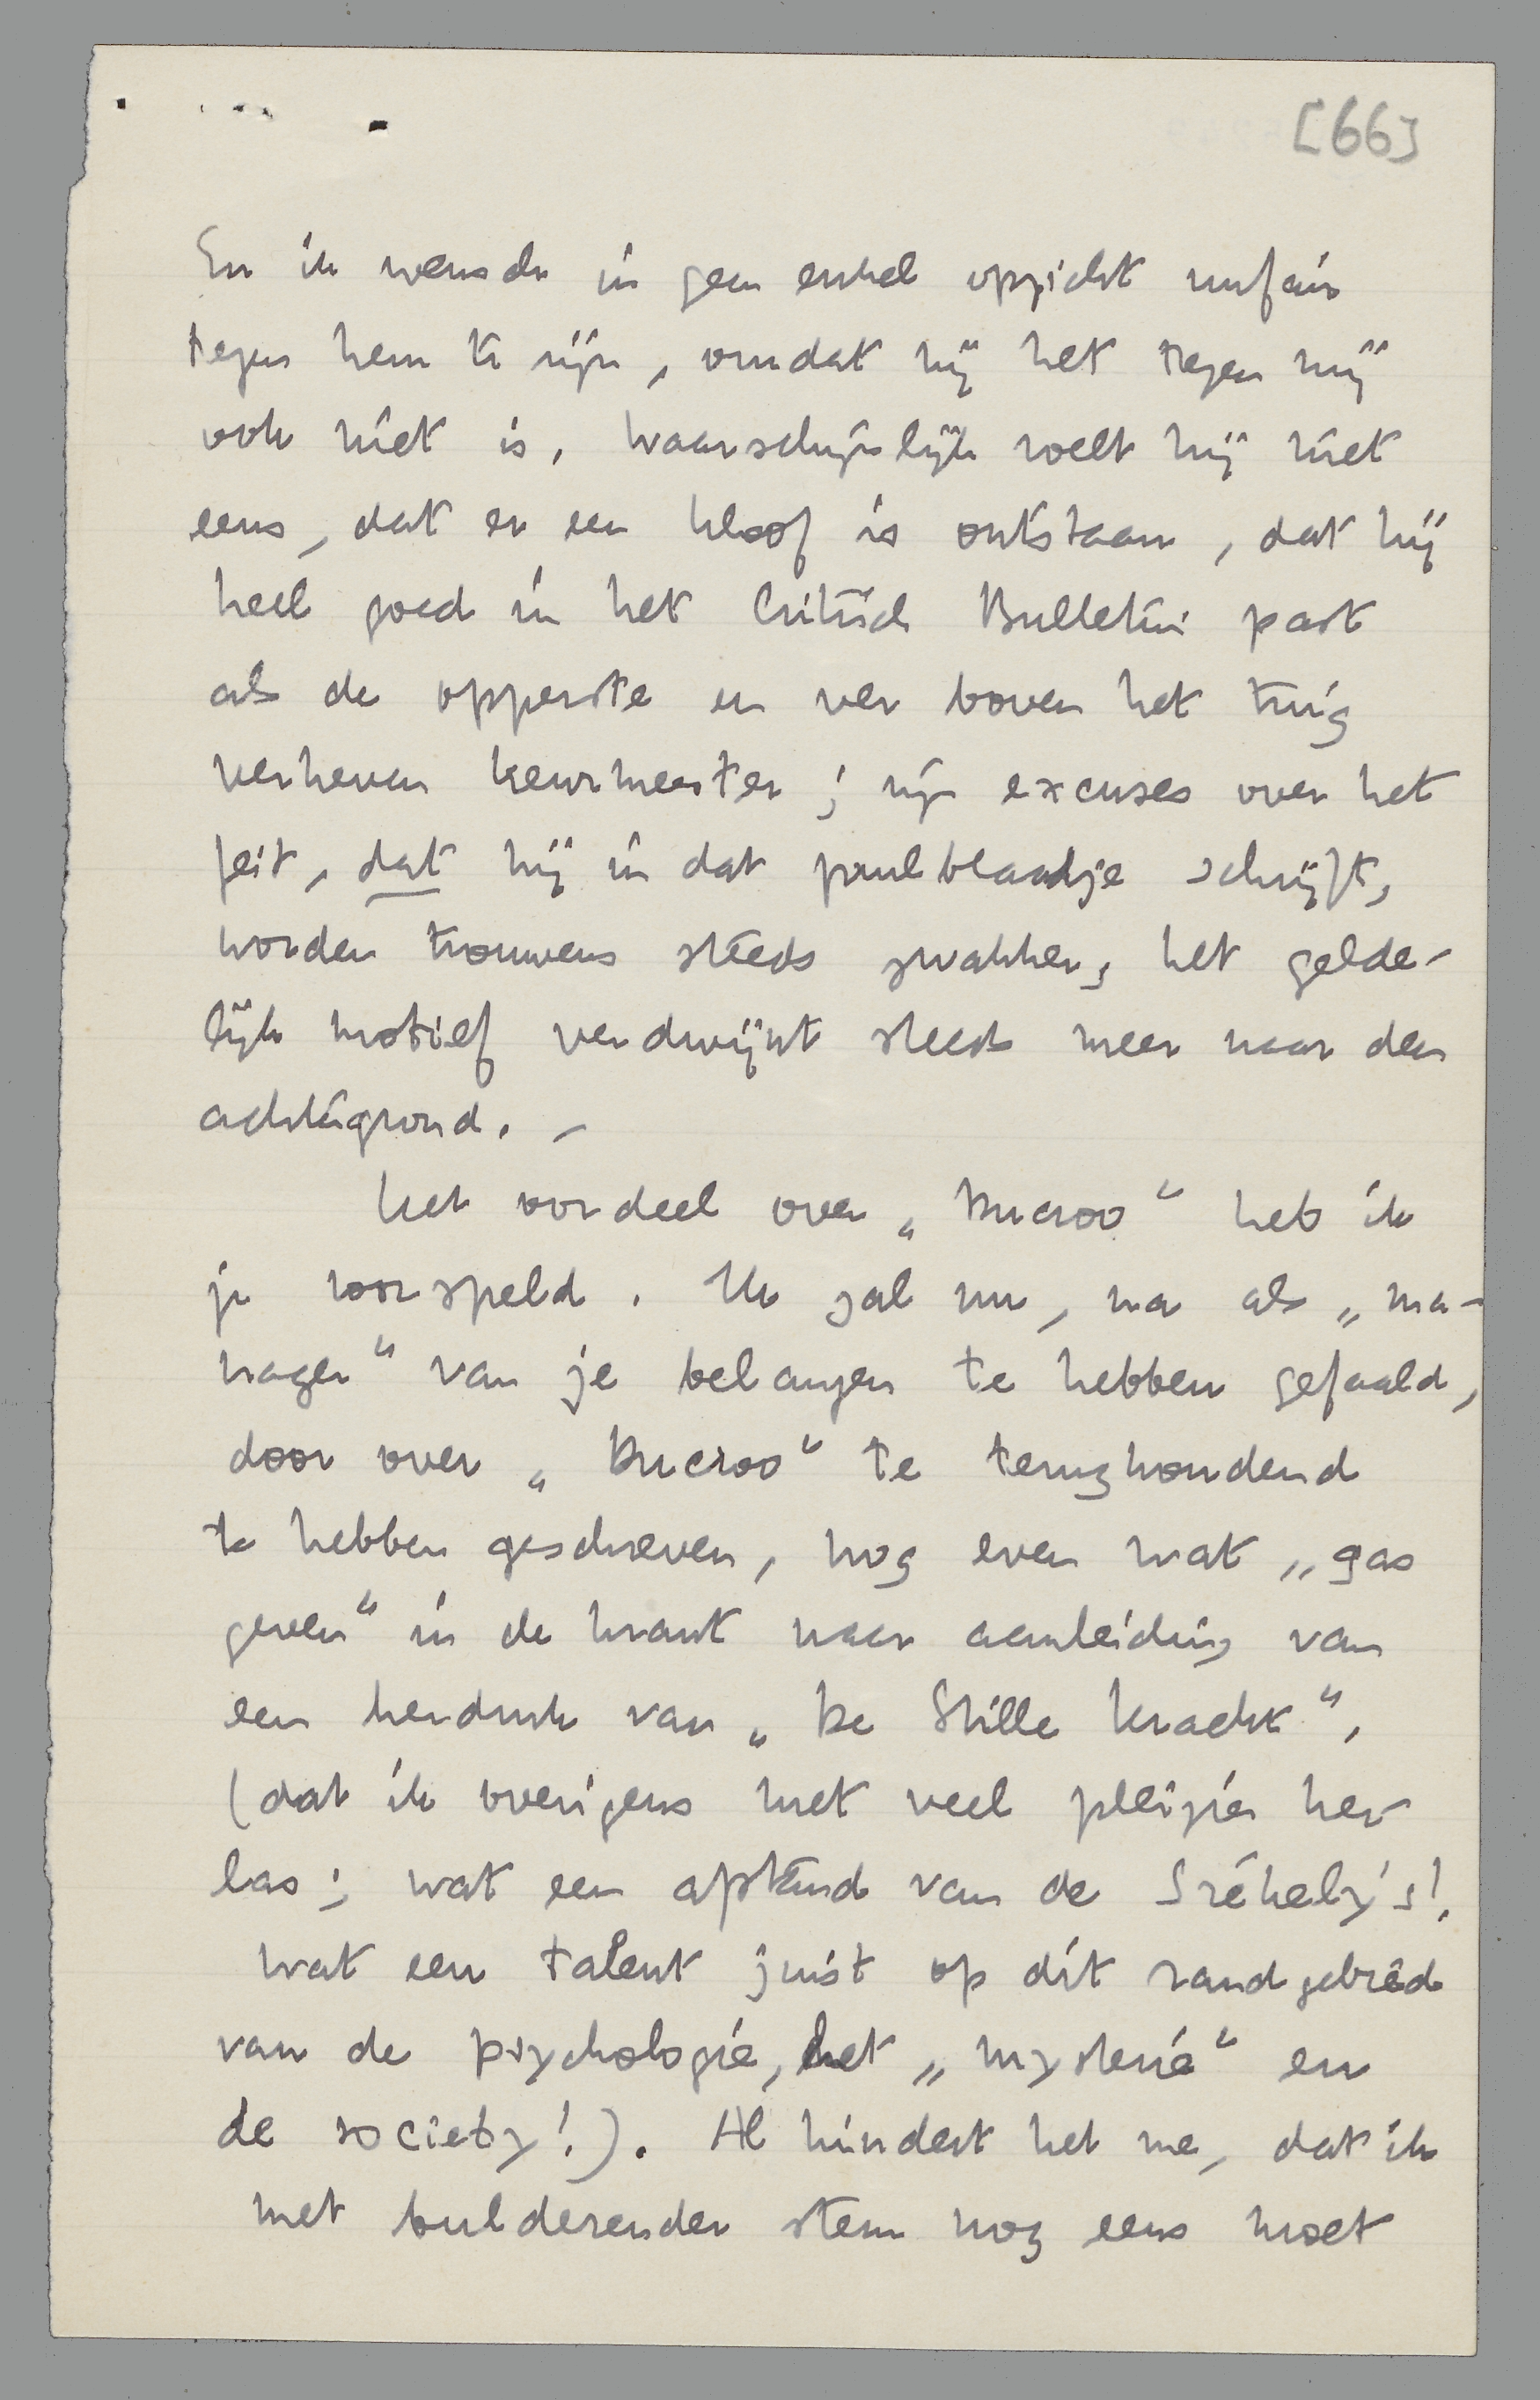 [66]
En ik wensch in geen enkel opzicht unfair
tegen hem te zijn, omdat hij het tegen mij
ook niet is. Waarschijnlijk voelt hij niet
eens, dat er een kloof is ontstaan, dat hij
heel goed in het Critisch Bulletin past
als de opperste en ver boven het tuig
verheven keurmeester; zijn excuses over het
feit, dat hij in dat prulblaadje schrijft,
worden trouwens steeds zwakker, het gelde-
lijk motief verdwijnt steeds meer naar den
achtergrond. –
Het oordeel over „Ducroo“ heb ik
je voorspeld. Ik zal nu, na als „ma-
nager“ van je belangen te hebben gefaald,
door over „Ducroo“ te terughoudend
te hebben geschreven, nog even wat „gas
geven“ in de krant naar aanleiding van
een herdruk van „De Stille Kracht“,
(dat ik overigens met veel pleizier her-
las; wat een afstand van de Székely's!,
wat een talent juist op dit randgebied
van de psychologie, het „mysterie“ en
de society!). Al hindert het me, dat ik
met bulderender stem nog eens moet